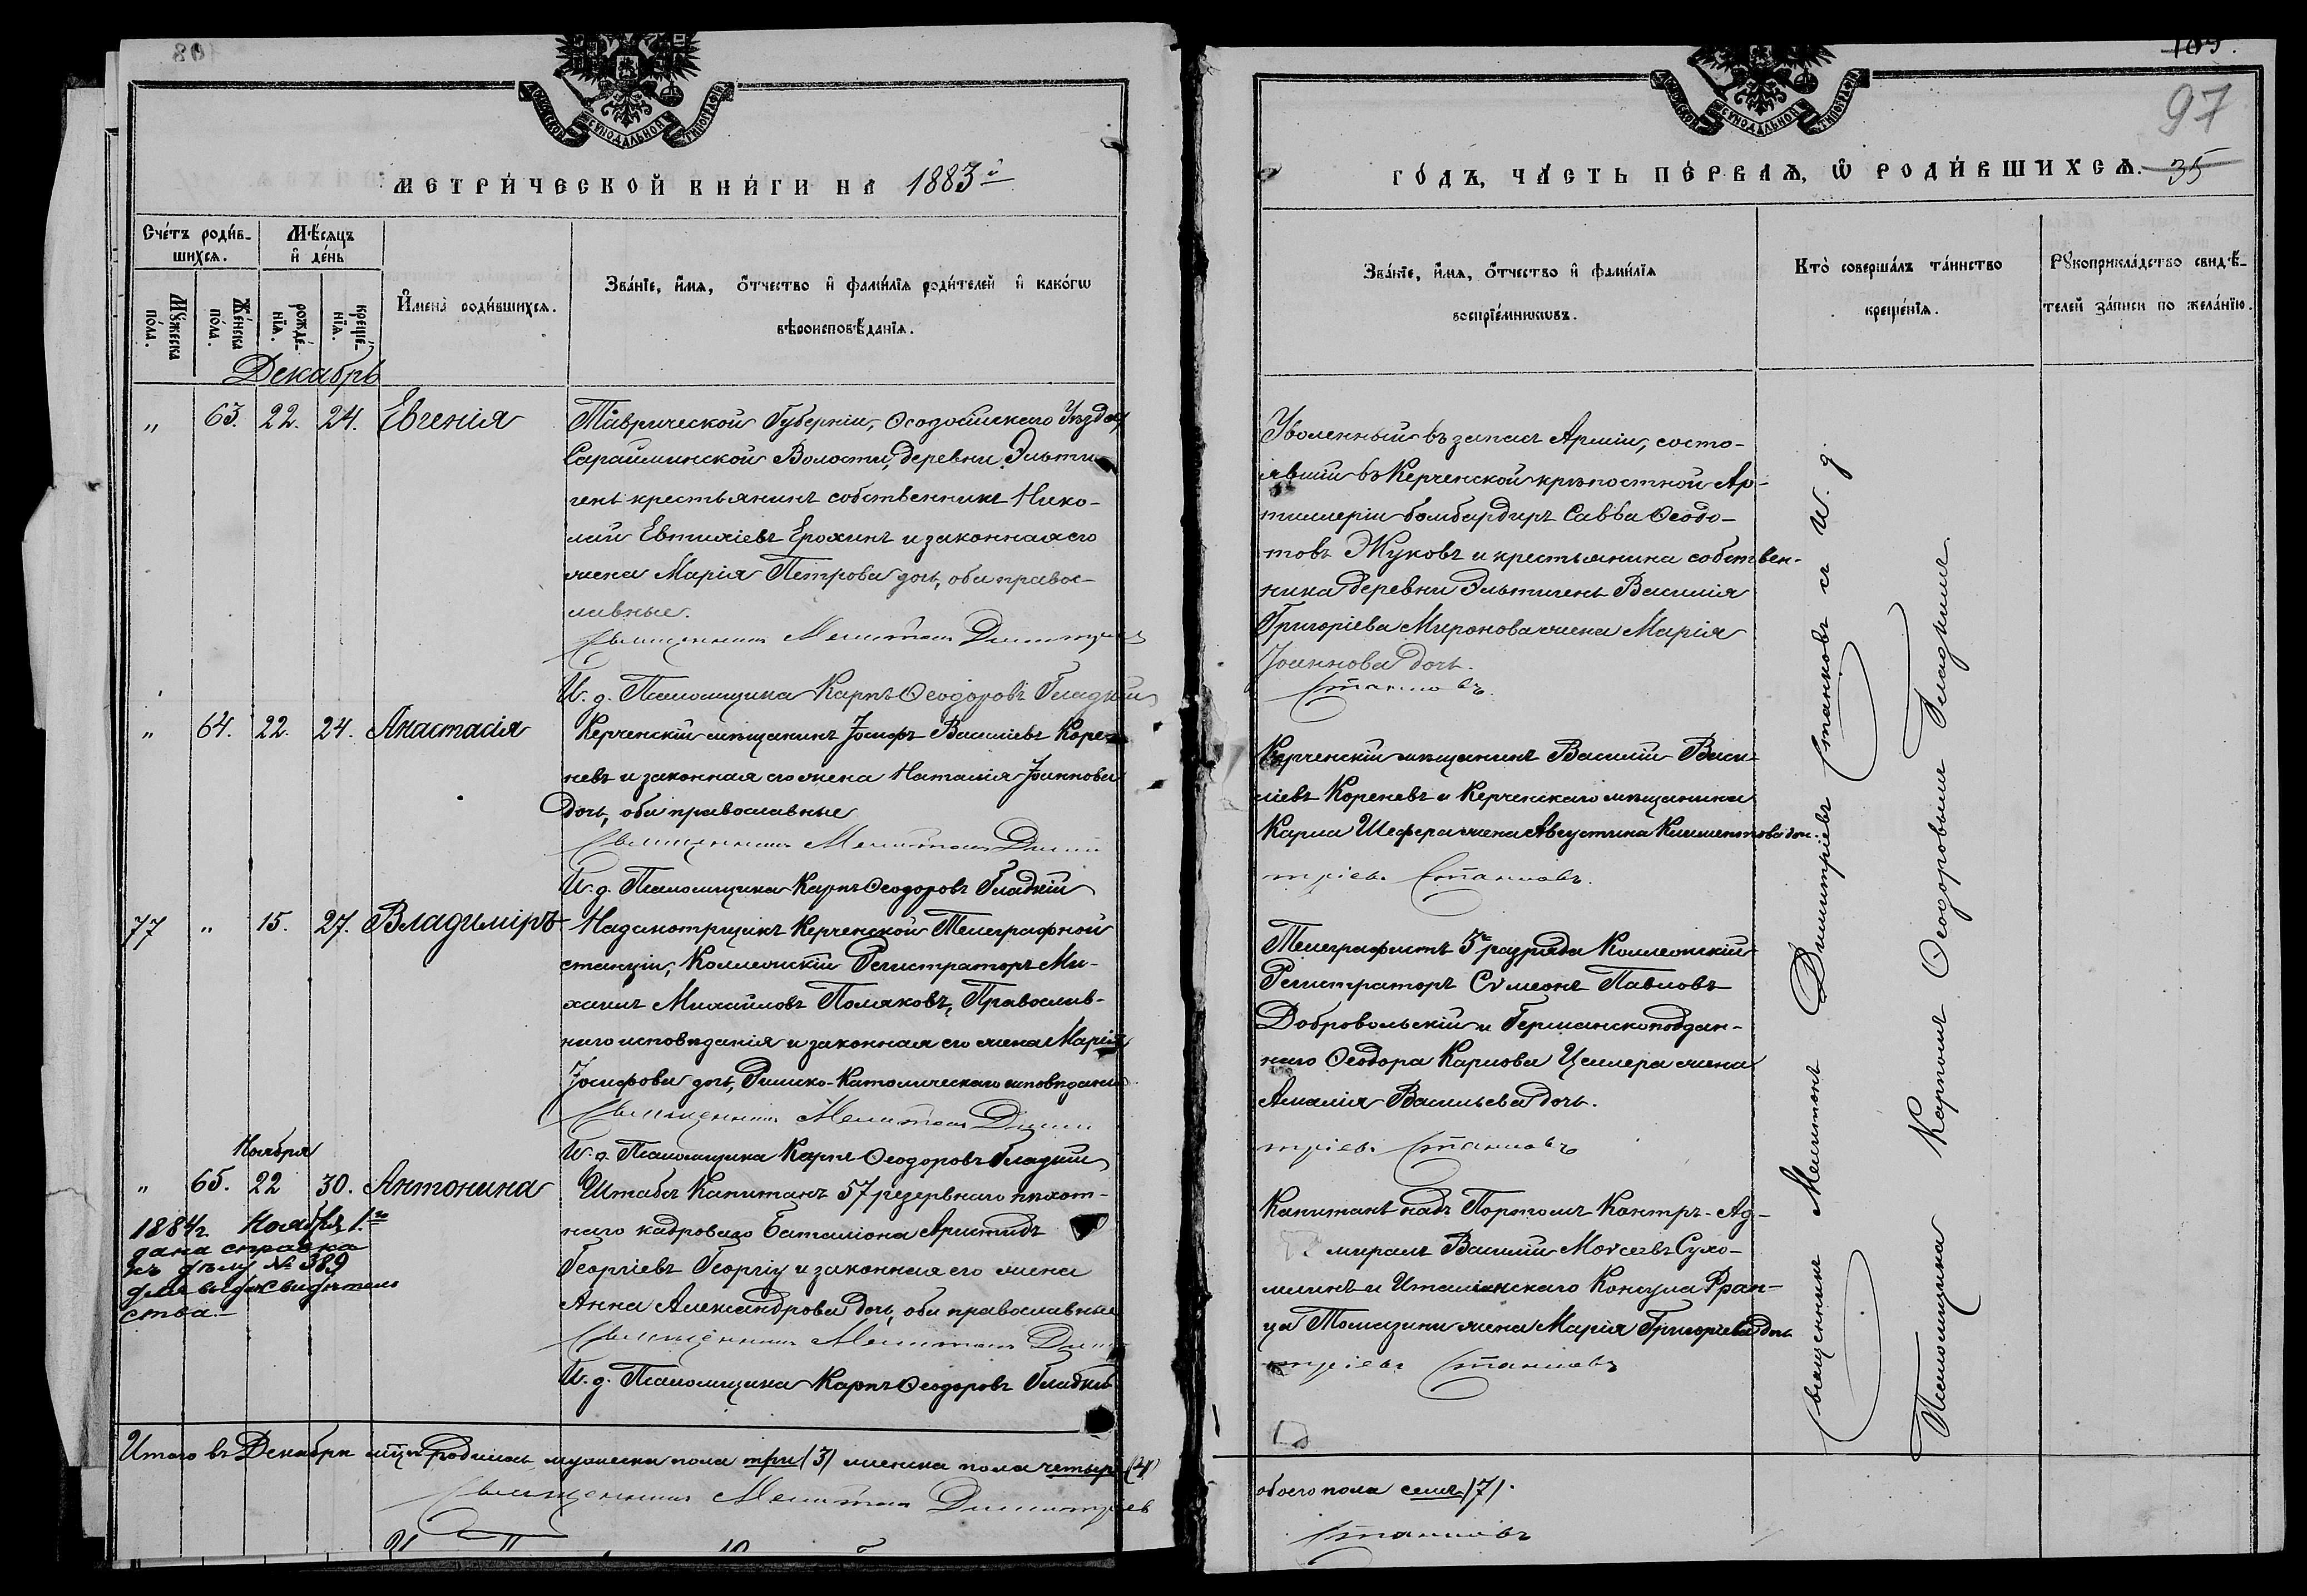 МЕТРИ́ЧЕСКОЙ КНИ́ГИ НА 1883й
Сче́тъ роди́в-
шихсѧ.
Мѣ́сѧцъ
и де́нь
Мꙋ́жеска
по́ла.
Же́нска
по́ла.
рожде́-
нїѧ.
креще́-
нїѧ.
И҆мена̀ роди́вшихсѧ.
Зва́нїе, и҆́мѧ, ѻ҆́тчество и҆ фами́лїѧ роди́телей и҆ како́гѡ
вѣроисповѣ́данїѧ.
Декабрь
„ 63. 22. 24. Евгенія
Таврической Губерніи, Ѳеодосійскаго Уѣзда,
Сарайминской Волости, деревни Эльти-
генъ крестьянинъ собственникъ Нико-
лай Евтихіевъ Ерохинъ и законная его
жена Марія Петрова дочь, оба правос-
лавные.
Священникъ Мелитонъ Димитріев
И. д. Псаломщика Карпъ Ѳеодоровъ Гладкій
„ 64. 22. 24. Анастасія
Керченскій мѣщанинъ Іосифъ Василіевъ Коре-
невъ и законная его жена Наталія Іоаннова
дочь, оба православные
Священникъ Мелитонъ Дими
И. д. Псаломщика Карпъ Ѳеодоровъ Гладкій
77 „ 15. 27. Владиміръ
Надсмотрщикъ Керченской Телеграфной
станціи, Коллежскій Регистраторъ Ми-
хаилъ Михайловъ Поляковъ, Православ-
наго исповѣданія и законная его жена Марія
Іосифова дочь, Римско-Католическаго исповѣданія
Священникъ Мелитонъ Дими
И. д. Псаломщика Карпъ Ѳеодоровъ Гладкій
Ноября
„ 65. 22 30. Антонина
Штабсъ Капитанъ 57 резервнаго пѣхот-
наго кадроваго Баталіона Аристидъ
Георгіевъ Георгіу и законная его жена
Анна Александрова дочь, оба православные
Священникъ Мелитонъ Дими
И. д. Псаломщика Карпъ Ѳеодоровъ Гладкій
1884 г. Ноября 1го
дана справка
къ дѣлу № 389
для выдачи свидѣтель
ства.
Итого въ Декабрѣ мцѣ родилось мужеска пола три (3) женска пола четыре (4)
Священникъ Мелитонъ Димитріев
97
ГО́ДЪ, ЧА́СТЬ ПЕ́РВАѦ, Ѡ РОДИ́ВШИХСѦ. 35
Зва́нїе, и҆́мѧ, ѻ҆́тчество и҆ фами́лїѧ
воспрїе́мникѡвъ.
Кто̀ соверша́лъ та́инство
креще́нїѧ.
Рꙋкоприкла́дство свидѣ́-
телей за́писи по жела́нїю.
Уволенный въ запасъ Арміи, состо-
явшій въ Керченской крѣпостной Ар-
тиллеріи бомбардиръ Савва Ѳеодо-
товъ Жуковъ и крестьянина собствен-
ника деревни Эльтигенъ Василія
Григоріева Миронова жена Марія
Іоаннова дочь.
Станковъ.
Керченскій мѣщанинъ Василій Васи-
ліевъ Кореневъ и Керченскаго мѣщанина
Карла Шефера жена Августина Климентова доч.
тріевъ Станковъ.
Телеграфистъ 3го разряда Коллежскій
Регистраторъ Сѵмеонъ Павловъ
Добровольскій и Германскоподдан-
наго Ѳеодора Карлова Целлера жена
Амалія Васильева дочь.
тріевъ Станковъ
Капитанъ надъ Портомъ Контръ-Ад-
миралъ Василій Моѵсеевъ Сухо-
млинъ и Италіянскаго Консула Фран-
ца Томазини жена Марія Григоріева дочь
тріевъ Станковъ
Священникъ Мелитонъ Димитріевъ Станковъ съ И. д.
Псаломщика Карпомъ Ѳеодоровымъ Гладкимъ.
обоего пола семь (7).
Станковъ